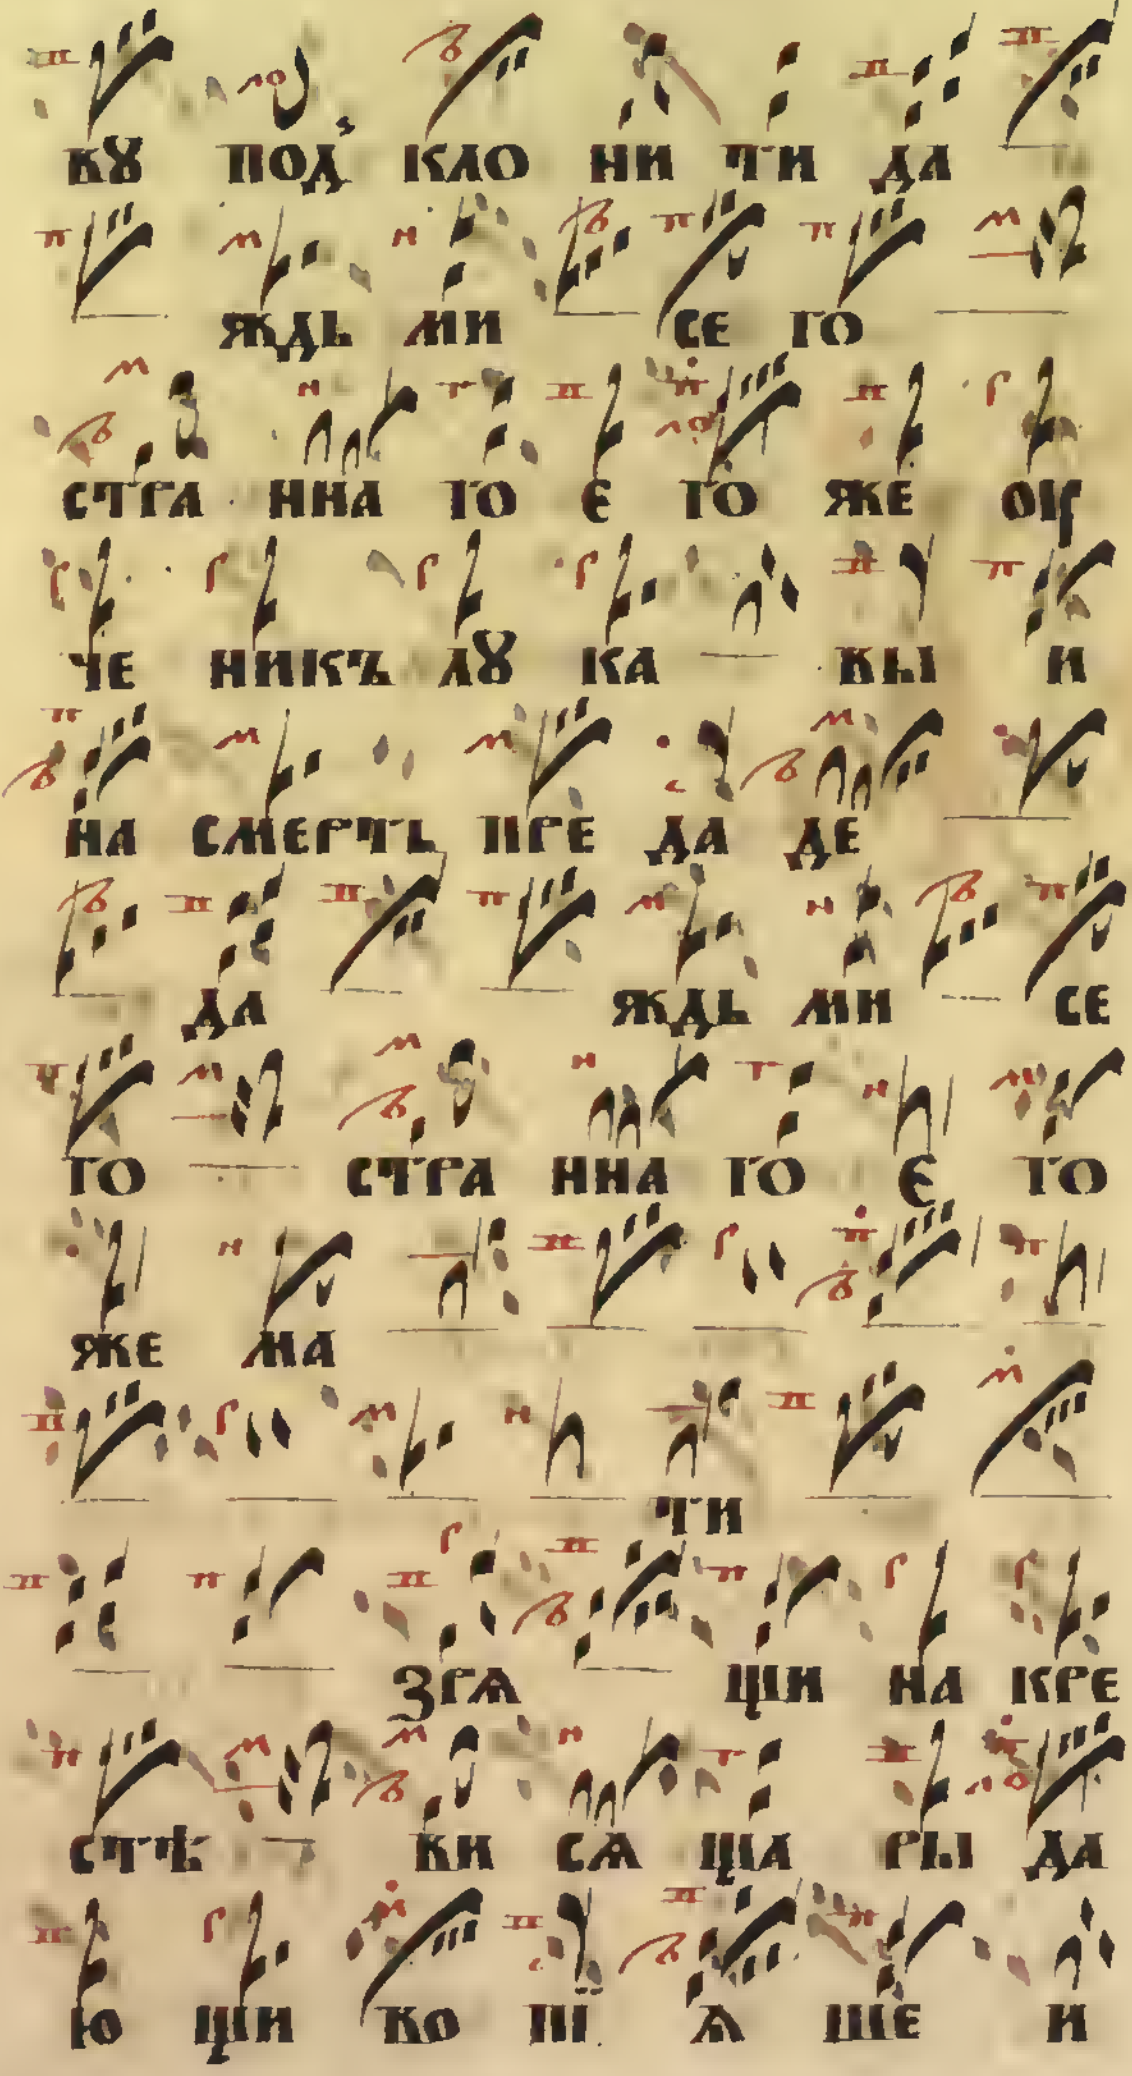 кꙋ под кло ни ти да
ждь ми се го
стра нна го е го же оу
че никъ лꙋ ка вы и
на смерть пре да де
да ждь ми се
го стра нна го е го
же ма
ти
зрѧ щи на кре
стѣ ви сѧ ща ры да
ю щи во пї ѧ ше и